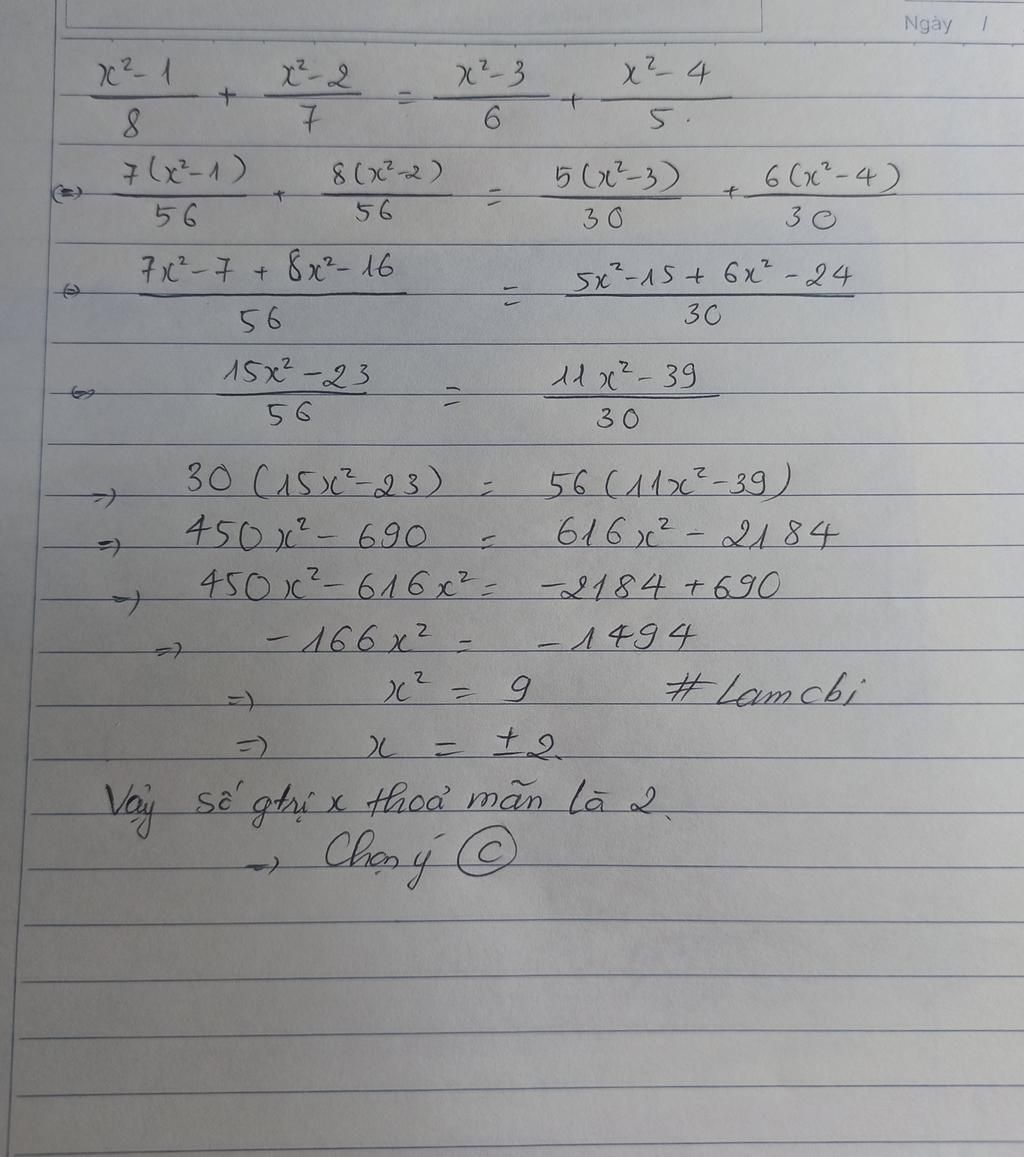 Ngày /
x² - 1 / 8 + x² - 2 / 7 = x² - 3 / 6 + x² - 4 / 5.
(=) 7(x² - 1) / 56 + 8(x² - 2) / 56 = 5(x² - 3) / 30 + 6(x² - 4) / 30
(=) 7x² - 7 + 8x² - 16 / 56 = 5x² - 15 + 6x² - 24 / 30
(=) 15x² - 23 / 56 = 11x² - 39 / 30
=) 30 (15x² - 23) = 56 (11x² - 39)
=) 450x² - 690 = 616x² - 2184
=) 450x² - 616x² = -2184 + 690
=) - 166x² = - 1494
=) x² = 9 # Lamcbi
=) x = ± 2.
Vậy số gtrị x thoả mãn là 2.
=) Chọn ý C